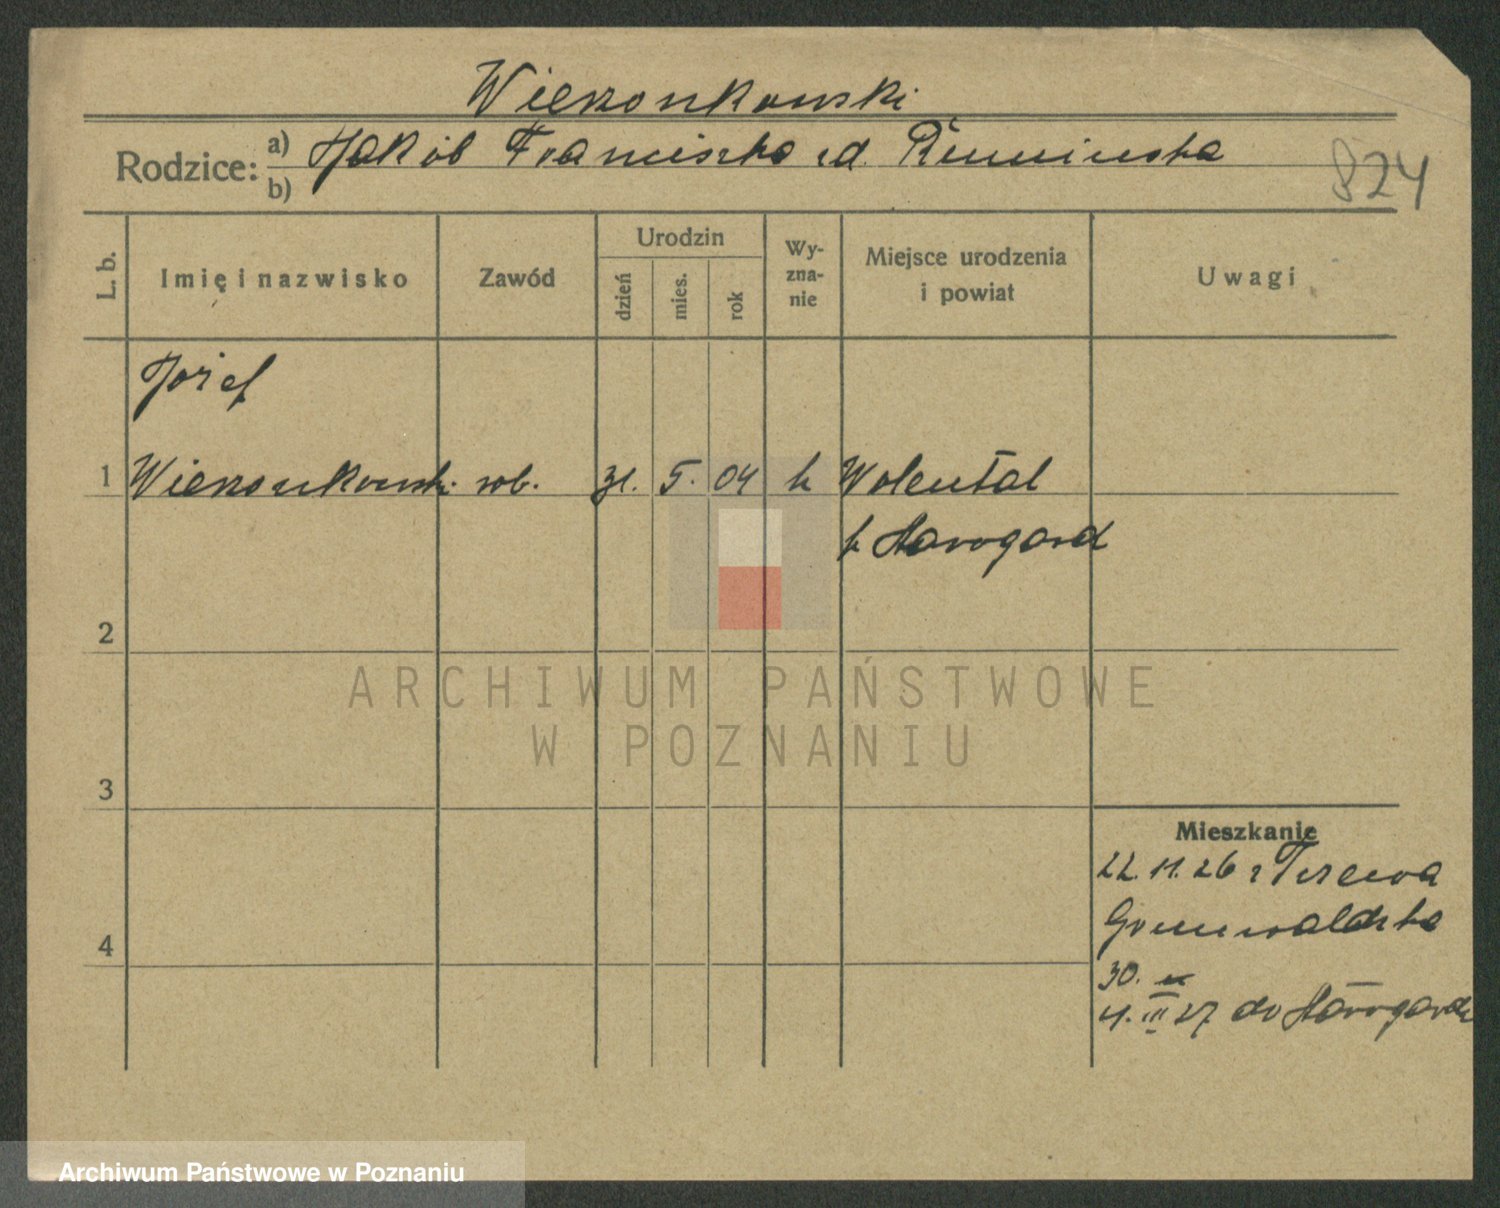 Wierzonkowski
Rodzice: a) Jakób Franciszka z d.
b)
824
L. b. Imię i nazwisko Zawód Urodzin dzień mies. rok Wy-zna-nie Miejsce urodzenia i powiat Uwagi
Józef
1 Wierzonkowski rob. 31. 5. 04 k Wolental
Starogard
2
3
4
Mieszkanie
22. 11. 26 z Tczewa
Grunwaldzka
30.
4. III 27 do Starogardu
ARCHIWUM PAŃSTWOWE
W POZNANIU
Archiwum Państwowe w Poznaniu